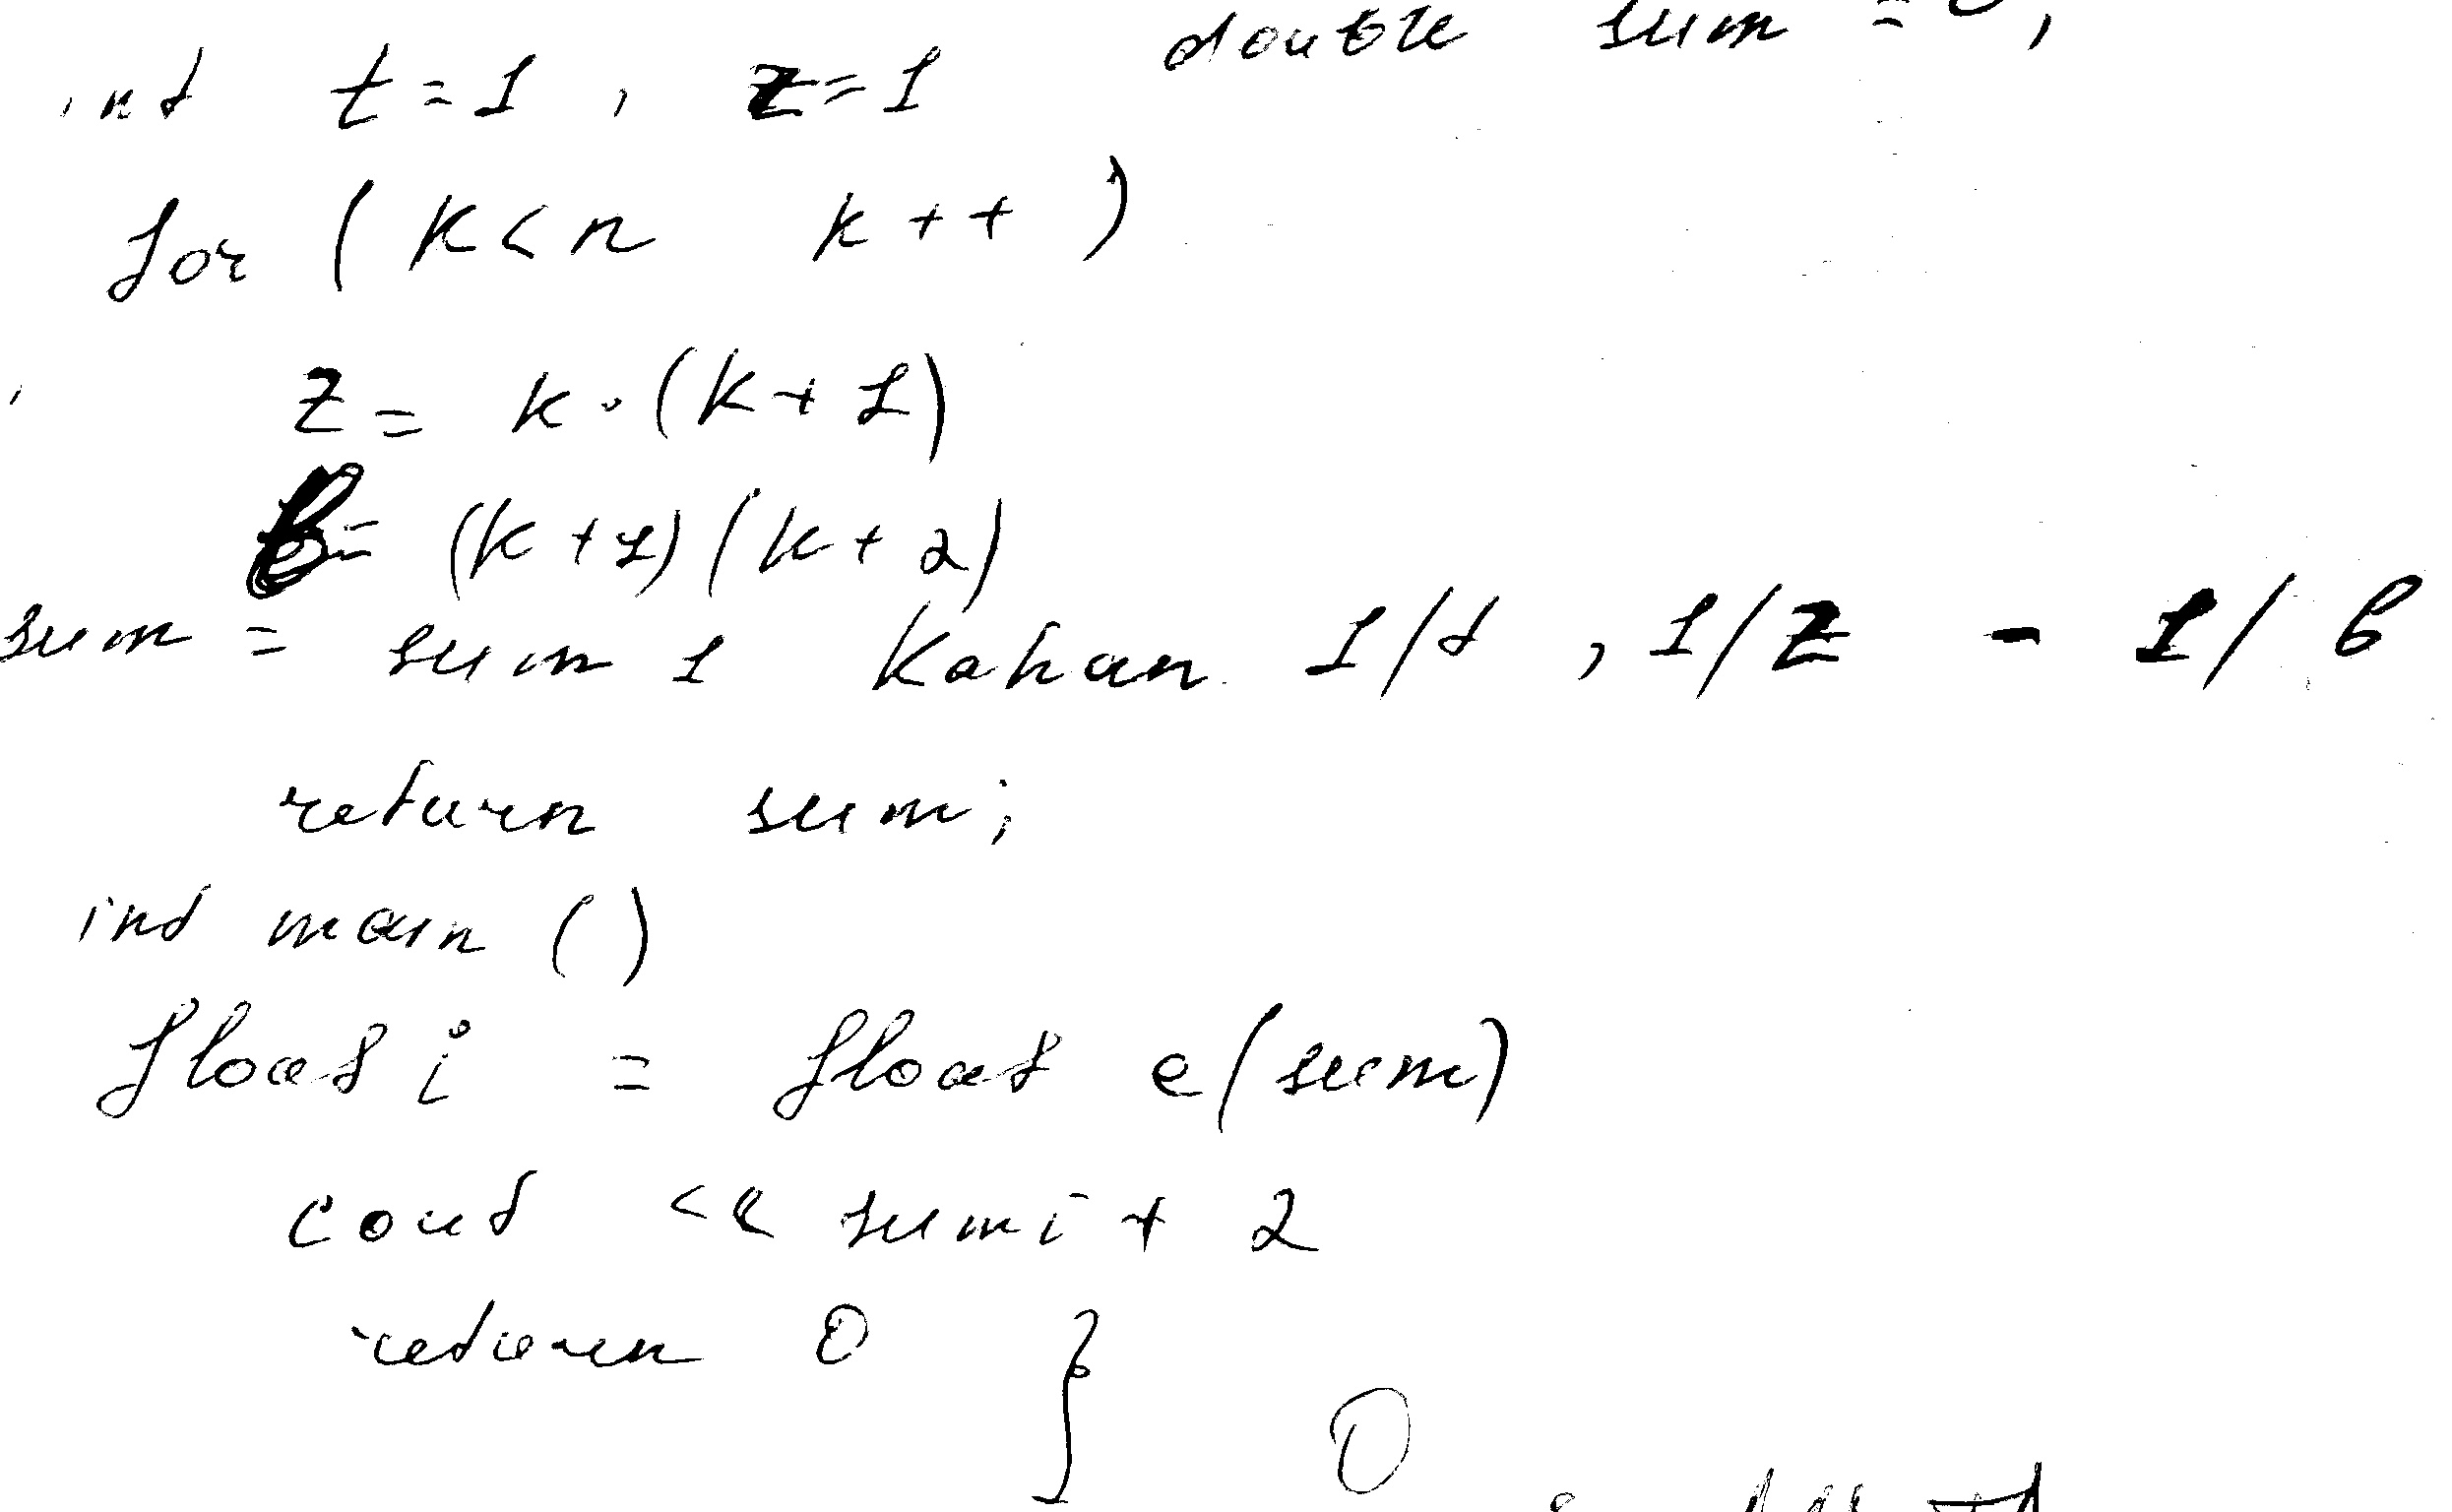 double sum = 0,
int t=1, z=1
for ( k<n k++ )
z = k·(k+1)
b= (k+1)(k+2)
sum = sum 1 Kahan 1/t, 1/z - 1/b
return sum;
int main ()
float i = float e(sum)
cout << sum i + 2
return 0 }
0